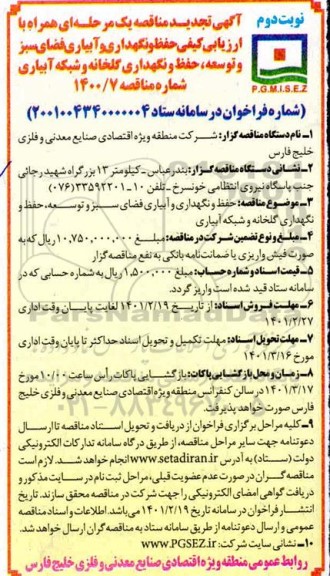 نوبت دوم
P.G.M.I.S.E.Z
آگهی تجدید مناقصه یک مرحله‌ای همراه با
ارزیابی کیفی حفظ و نگهداری و آبیاری فضای سبز
و توسعه، حفظ و نگهداری گلخانه و شبکه آبیاری
شماره مناقصه ۱۴۰۰/۷
(شماره فراخوان در سامانه ستاد ۲۰۰۱۰۰۴۳۴۰۰۰۰۰۰۴)
۱- نام دستگاه مناقصه گزار: شرکت منطقه ویژه اقتصادی صنایع معدنی و فلزی
خلیج فارس
۲- نشانی دستگاه مناقصه گزار: بندرعباس - کیلومتر ۱۳ بزرگراه شهید رجائی
جنب پاسگاه نیروی انتظامی خونسرخ - تلفن ۱۰ - ۳۳۵۹۲۲۰۱ (۰۷۶)
۳- موضوع مناقصه: حفظ و نگهداری و آبیاری فضای سبز و توسعه، حفظ و
نگهداری گلخانه و شبکه آبیاری
۴- مبلغ و نوع تضمین شرکت در مناقصه: مبلغ ۱۰,۷۵۰,۰۰۰,۰۰۰ ریال که به
صورت فیش واریزی یا ضمانت‌نامه بانکی به نفع مناقصه گزار
۵- قیمت اسناد و شماره حساب: مبلغ ۱,۵۰۰,۰۰۰ ریال به شماره حسابی که در
سامانه ستاد قید شده است واریز گردد.
۶- مهلت فروش اسناد: از تاریخ ۱۴۰۱/۲/۱۹ لغایت پایان وقت اداری
۱۴۰۱/۲/۲۷
۷- مهلت تحویل اسناد: مهلت تکمیل و تحویل اسناد حداکثر تا پایان وقت اداری
مورخ ۱۴۰۱/۳/۱۶
۸- زمان و محل بازگشایی پاکات: بازگشایی پاکات رأس ساعت ۱۰/۰۰ مورخ
۱۴۰۱/۳/۱۷ در سالن کنفرانس منطقه ویژه اقتصادی صنایع معدنی و فلزی خلیج
فارس صورت خواهد پذیرفت.
۹- کلیه مراحل برگزاری فراخوان از دریافت و تحویل اسناد مناقصه تا ارسال
دعوتنامه جهت سایر مراحل مناقصه، از طریق درگاه سامانه تدارکات الکترونیکی
دولت (ستاد) به آدرس www.setadiran.ir انجام خواهد شد. لازم است
مناقصه گران در صورت عدم عضویت قبلی، مراحل ثبت نام در سایت مذکور و
دریافت گواهی امضای الکترونیکی را جهت شرکت در مناقصه محقق سازند. تاریخ
انتشار فراخوان در سامانه تاریخ ۱۴۰۱/۲/۱۹ می باشد. اطلاعات و اسناد مناقصه
عمومی و ارسال دعوتنامه از طریق سامانه ستاد به مناقصه گران ارسال خواهد شد.
۱۰- نشانی سایت شرکت: www.PGSEZ.ir
روابط عمومی منطقه ویژه اقتصادی صنایع معدنی و فلزی خلیج فارس